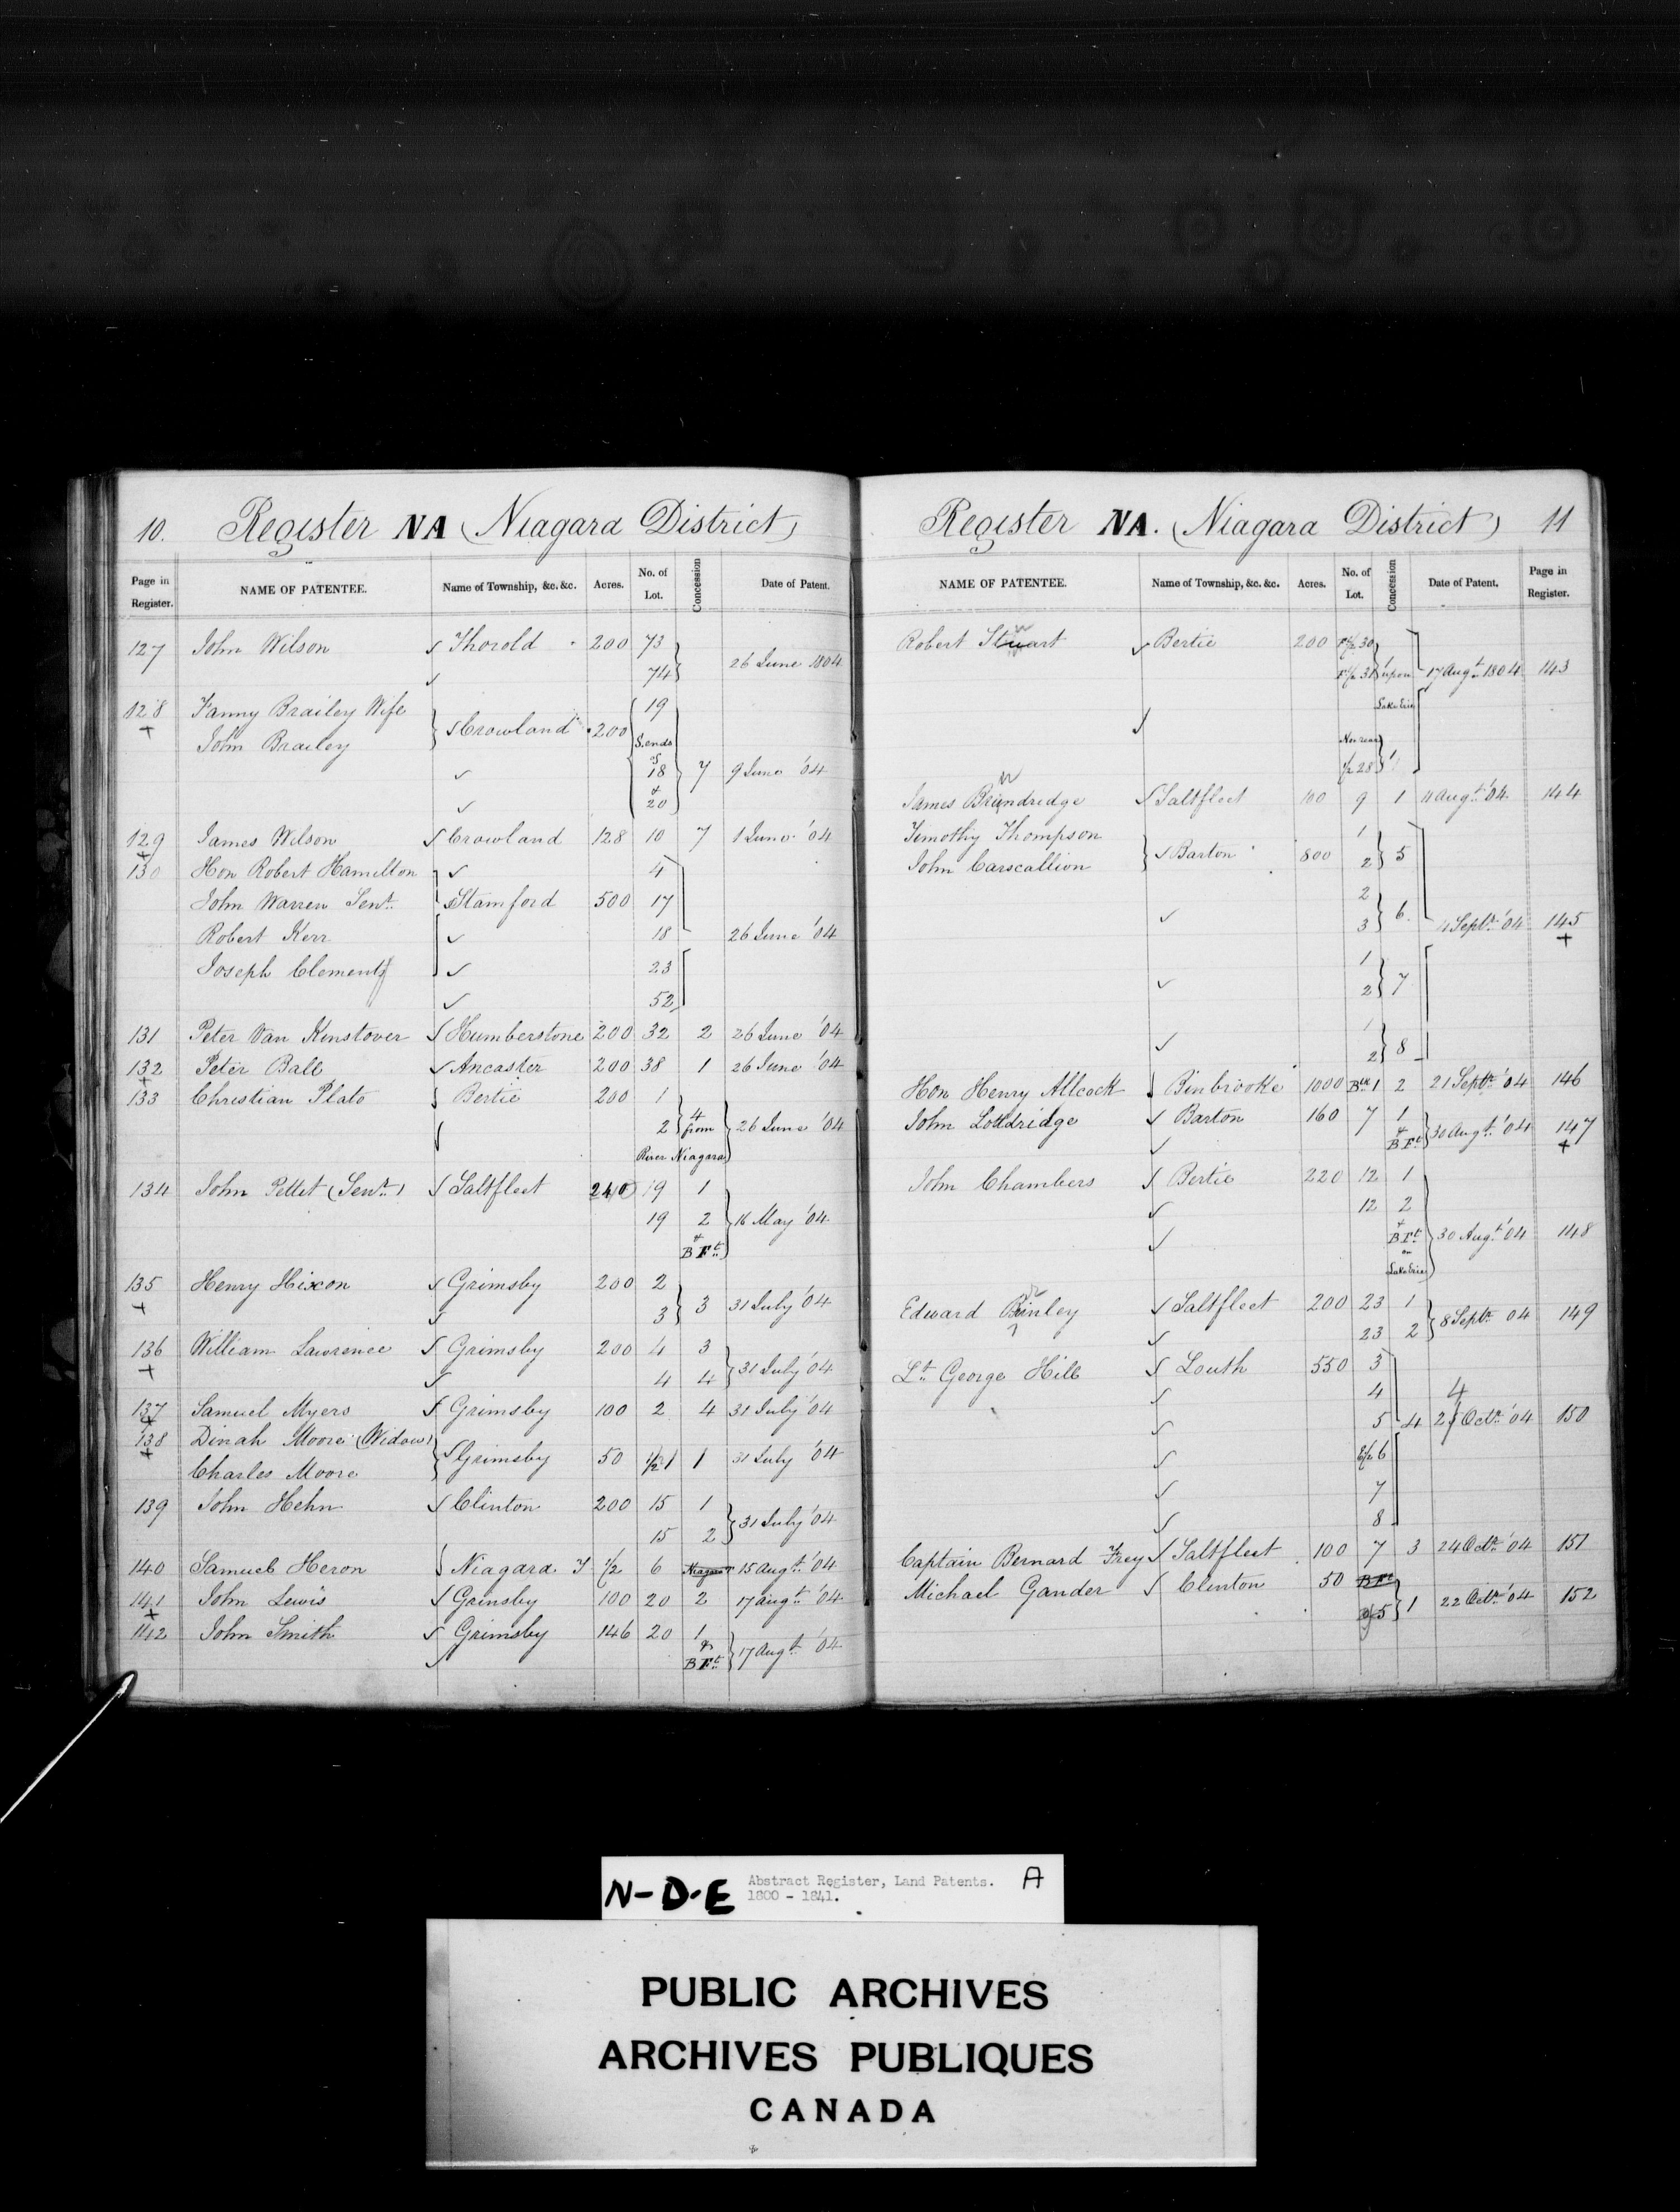 10. Register NA (Niagara District)
Page in Register. NAME OF PATENTEE. Name of Township, &c. &c. Acres. No. of Lot. Concession Date of Patent.
127 John Wilson Thorold 200 73
74 26 June 1804
128 Fanny Brailey Wife 19
John Brailey Crowland 200 S. ends
of
18 7 9 June '04
&
20
129 James Wilson Crowland 128 10 7 1 June '04
130 Hon Robert Hamilton 4
John Warren Senr. Stamford 500 17
Robert Kerr 18 26 June '04
Joseph Clement 23
52
131 Peter Van Kinstover Humberstone 200 32 2 26 June '04
132 Peter Ball Ancaster 200 38 1 26 June '04
133 Christian Plato Bertie 200 1
2 4 from 26 June '04
River Niagara
134 John Pettet (Senr.) Saltfleet 240 19 1
19 2 16 May '04
&
B Ft.
135 Henry Hixon Grimsby 200 2
3 3 31 July '04
136 William Lawrence Grimsby 200 4 3
4 4 31 July '04
137 Samuel Myers Grimsby 100 2 4 31 July '04
138 Dinah Moore (Widow)
Charles Moore Grimsby 50 1/2 1 1 31 July '04
139 John Hehn Clinton 200 15 1
15 2 31 July '04
140 Samuel Heron Niagara T 1/2 6 Niagara 15 Augt. '04
141 John Lewis Grimsby 100 20 2 17 Augt. '04
142 John Smith Grimsby 146 20 1
&
B Ft. 17 Augt. '04
Register NA. (Niagara District) 11
NAME OF PATENTEE. Name of Township, &c. &c. Acres. No. of Lot. Concession Date of Patent. Page in Register.
Robert Stuart Bertie 200 F 1/2 30
F 1/2 31 1 upon 17 Augt. 1804 143
Lake Erie
Nor rear
1/2 28 1
James Brundredge Saltfleet 100 9 1 11 Augt. '04 144
Timothy Thompson 1
John Carscallion Barton 800 2 5
2
3 6 11 Septr. '04 145
1
2 7
1
2 8
Hon Henry Allcock Binbrooke 1000 Blk. 1 2 21 Septr. '04 146
John Lottridge Barton 160 7 1
&
B Ft. 30 Augt. '04 147
John Chambers Bertie 220 12 1
12 2
&
B Ft. 30 Augt. '04 148
on
Lake Erie
Edward Brinley Saltfleet 200 23 1
23 2 8 Septr. 04 149
Lt. George Hill Louth 550 3
4 4
5 4 25 Octr. '04 150
E 1/2 6
7
8
Captain Bernard Frey Saltfleet 100 7 3 24 Octr. '04 151
Michael Gander Clinton 50 B Ft.
of 5 1 22 Octr. '04 152
N-D-E Abstract Register, Land Patents. A
1800 - 1841.
PUBLIC ARCHIVES
ARCHIVES PUBLIQUES
CANADA